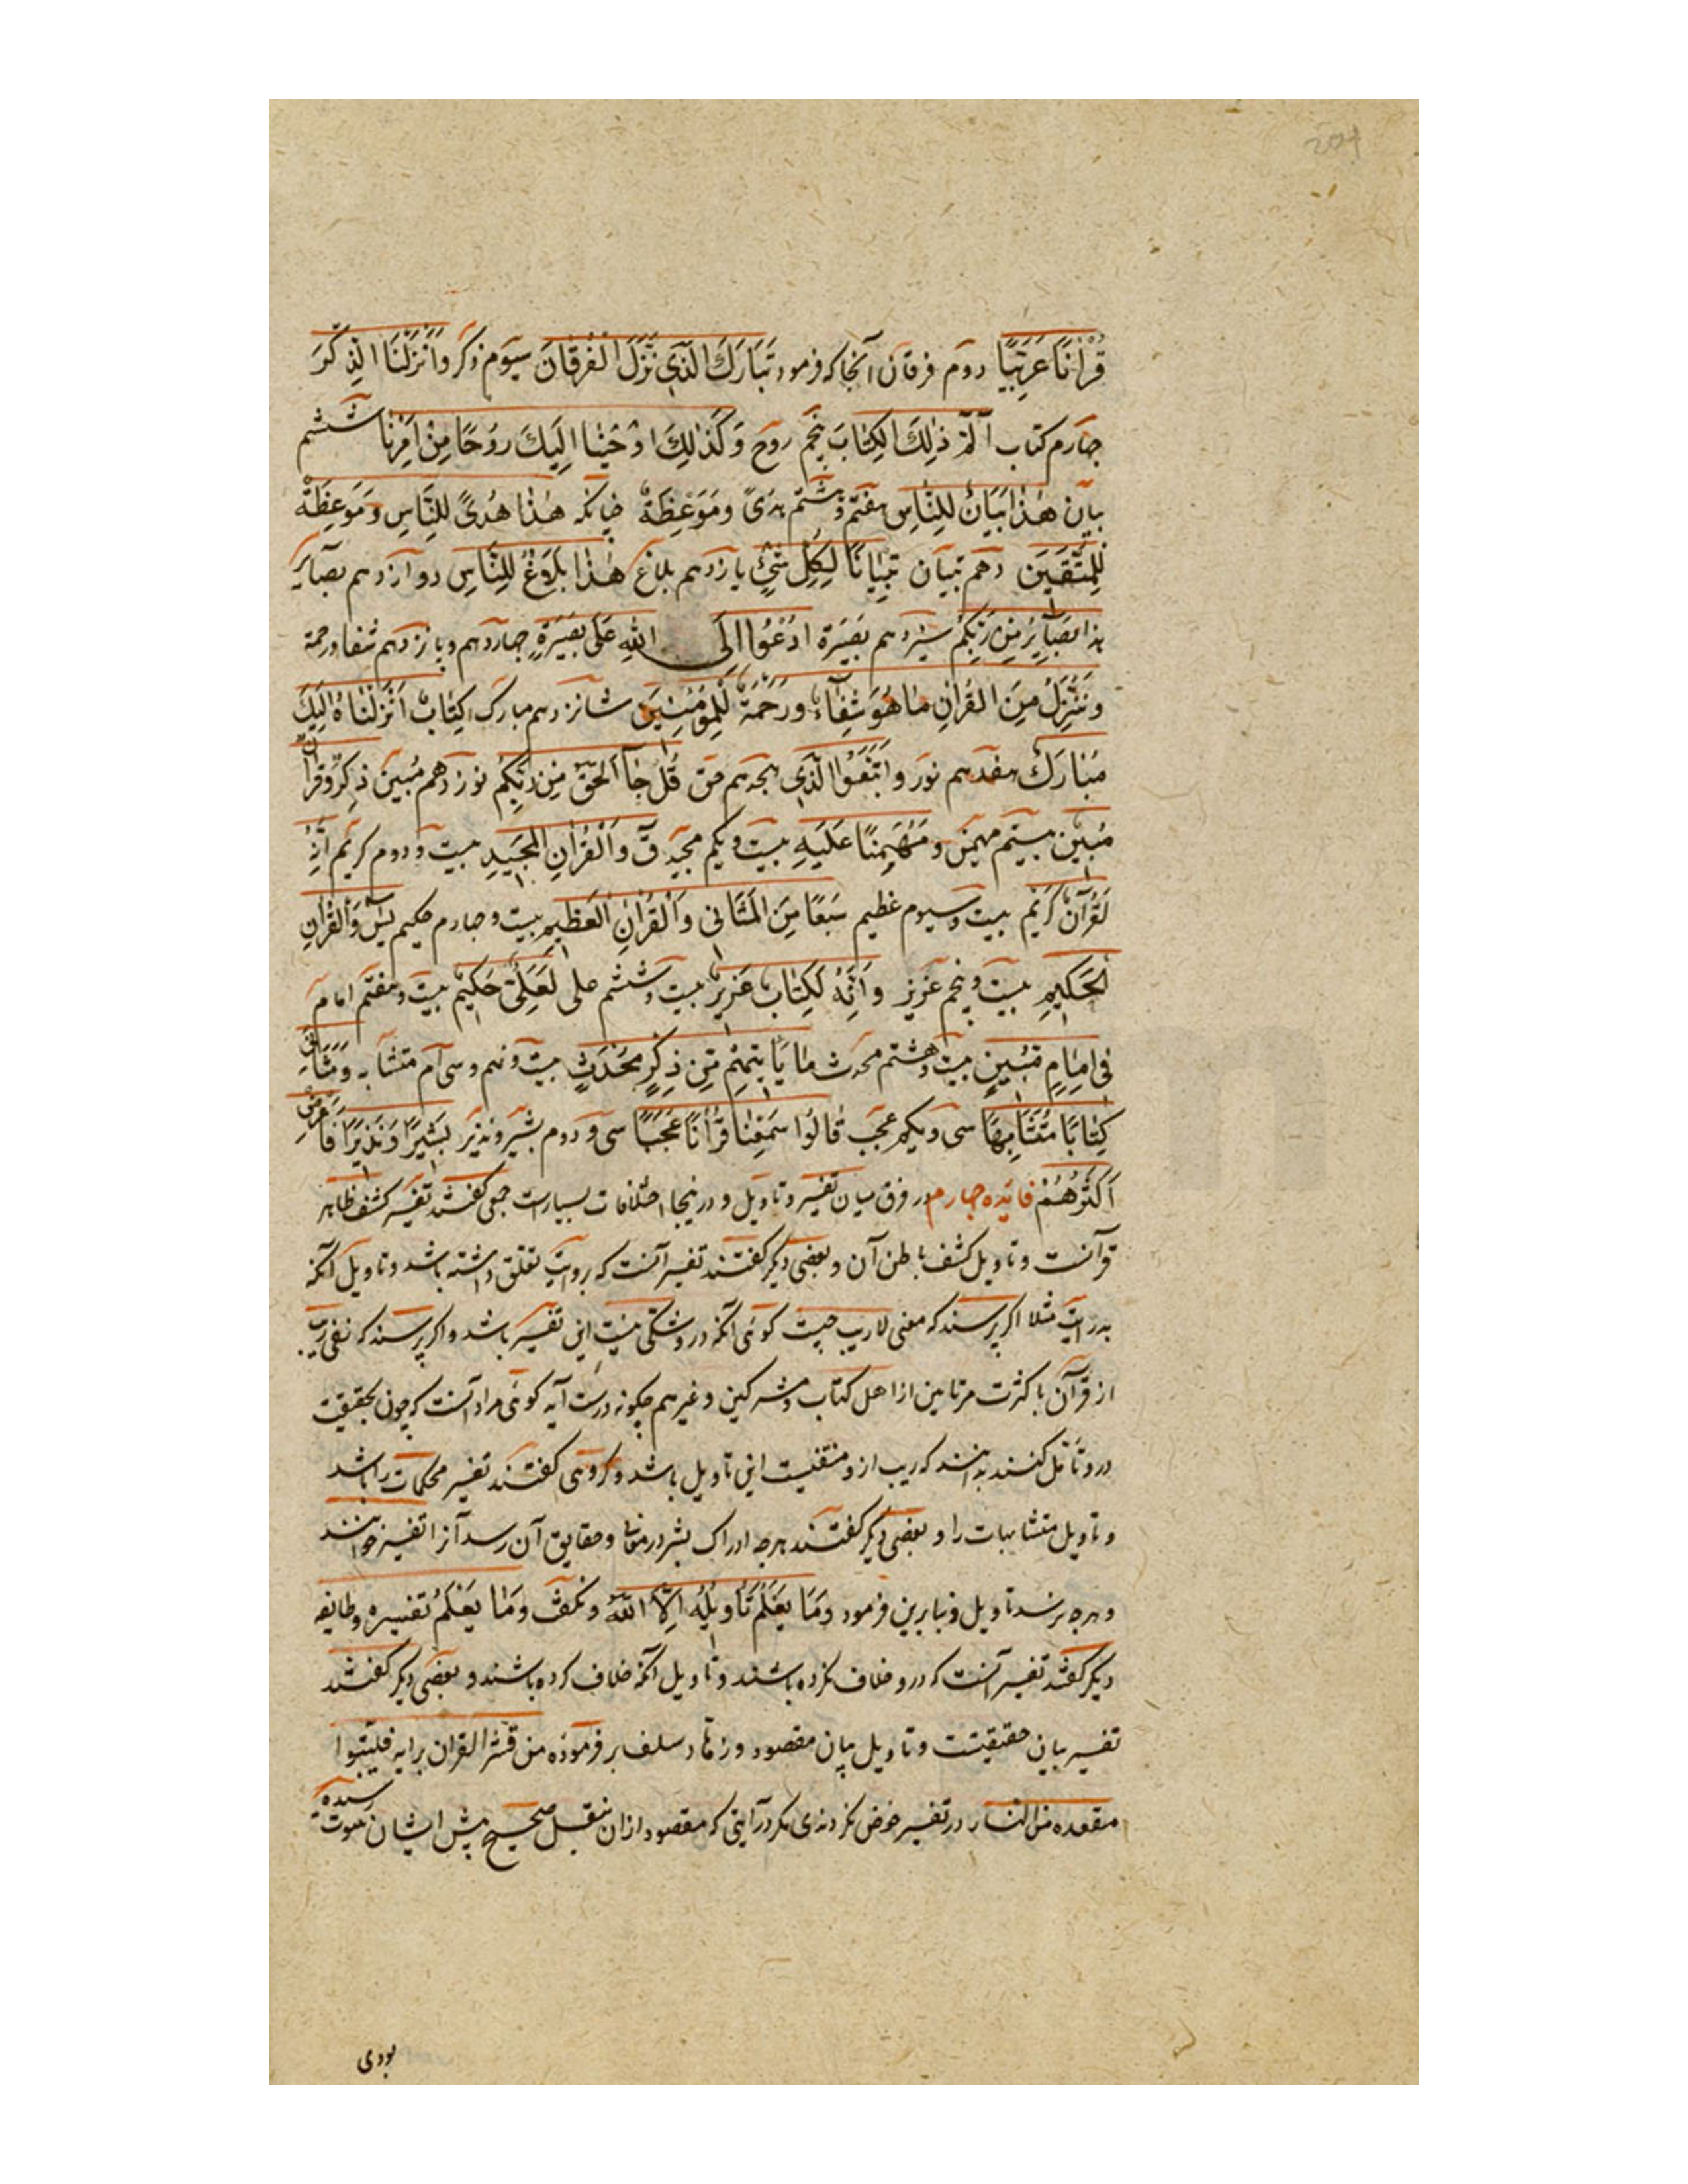 قُرْاٰنًا عَرَبِيًّا دوم فرقان آنجا که فرمود تَبَارَكَ الَّذِي نَزَّلَ الْفُرْقَانَ سیوم ذکر وَاَنْزَلْنَا الذِّكْرَ
جهارم کتاب الٓمّٓ ذٰلِكَ الْكِتٰابَ پنجم روح وَكَذٰلِكَ اَوْحَيْنٰا اِلَيْكَ رُوحًا مِنْ اَمْرِنٰا ششم
بیان هٰذٰا بَيَانٌ لِلنّٰاسِ هفتم و هشتم هدیً وَمَوْعِظَةٌ چنانکه هٰذٰا هُدىً لِلنَّاسِ وَمَوْعِظَةٌ
لِلْمُتَّقِينَ دهم تبیان تِبْيٰانًا لِكُلِّ شَيْءٍ یازدهم بلاغ هٰذٰا بَلَاغٌ لِلنَّاسِ دوازدهم بصآیر
هذا بَصَآئِرُ مِنْ رَبِّكُمْ سیزدهم بَصِيرَة اَدْعُوا اِلَى اللهِ عَلٰى بَصِيرَةٍ جهاردهم و پانزدهم شفا و رحمة
وَنُنَزِّلُ مِنَ الْقُرْاٰنِ مٰا هُوَ شِفٰآءٌ وَرَحْمَةٌ لِلْمُؤْمِنِينَ شانزدهم مبارک كِتٰابٌ اَنْزَلْنٰاهُ اِلَيْكَ
مُبٰارَكٌ هفدهم نور وَاتَّبَعُوا النُّورَ الَّذِي هجدهم حق قُلْ جٰآءَ الْحَقُّ مِنْ رَبِّكُمْ نوزدهم مُبین ذِكْرٌ وَقُرْاٰنٌ
مُبِينٌ بیستم مهیمن وَمُهَيْمِنًا عَلَيْهِ بیست و یکم مجید قٓ وَالْقُرْاٰنِ الْمَجِيدِ بیست و دوم کریم اِنَّهُ
لَقُرْآنٌ كَرِيمٌ بیست و سیوم عظیم سَبْعًا مِنَ الْمَثَانِي وَالْقُرْاٰنِ الْعَظِيمِ بیست و جهارم حکیم يٰسٓ وَالْقُرْاٰنِ
الْحَكِيمِ بیست و پنجم عزیز وَاِنَّهُ لَكِتٰابٌ عَزِيزٌ بیست و ششم علی لَعَلِيٌّ حَكِيمٌ بیست و هفتم امام
فِي اِمٰامٍ مُبِينٍ بیست و هشتم محدث مٰا يَأْتِيهِمْ مِنْ ذِكْرٍ مُحْدَثٍ بیست و نهم و سی ام متشابه و مَثَانِي
كِتٰابًا مُتَشَابِهًا سی و یکم عجب قٰالُوا سَمِعْنٰا قُرْاٰنًا عَجَبًا سی و دوم بشیر و نذیر بَشِيرًا وَنَذِيرًا فَاَعْرَضَ
اَكْثَرُهُمْ فایده جهارم در فرق میان تفسیر و تاویل و درینجا اختلافات بسیارست جمعی گفتند تفسیر کشف ظاهر
قرآنست و تاویل کشف باطن آن و بعضی دیگر گفتند تفسیر آنست که بروایت تعلق داشته باشد و تاویل آنکه
بدرایت مثلا اگر پرسند که معنی لاریب چیست گوئی آنکه درو شکی نیست این تفسیر باشد و اگر پرسند که نفی ریب
از قرآن با کثرت مرتابین از اهل کتاب و مشرکین و غیرهم چگونه درست آید گوئی مراد آنست که چون بحقیقت
درو تأمل کنند بدانند که ریب ازو منفیست این تاویل باشد و گروهی گفتند تفسیر محکمات را باشد
و تاویل متشابهات را و بعضی دیگر گفتند هرچه ادراک بشر در معانی و حقایق آن رسد آنرا تفسیر خوانند
و هرچه نرسد تاویل و بنابرین فرمود وَمَا يَعْلَمُ تَأْوِيلَهُ اِلَّا اللهُ و نگفت وَمٰا يَعْلَمُ تفسیره و طایفه
دیگر گفتند تفسیر آنست که درو خلاف نکرده باشند و تاویل آنکه خلاف کرده باشند و بعضی دیگر گفتند
تفسیر بیان حقیقتست و تاویل بیان مقصود و زهاد سلف بر فرموده من فسّر القران برایه فلیتبوا
مقعده من النار در تفسیر خوض نکردندی مکر در آیتی که مقصود ازان بنقل صحیح پیش ایشان بثبوت رسیده
بودی